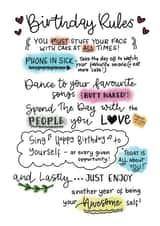 Birthday Rules
YOU MUST STUFF YOUR FACE
WITH CAKE AT ALL TIMES!
PHONE IN SICK
Take the day off to watch
your favourite movies (and eat
more cake!)
Dance to your favourite
songs BUTT NAKED!
Spend The Day with the
PEOPLE you LOVE
Sing Happy Birthday to
Yourself - at every given
opportunity!
TODAY IS
ALL ABOUT
YOU!
and Lastly... JUST ENJOY
another year of being
your Awesome self!